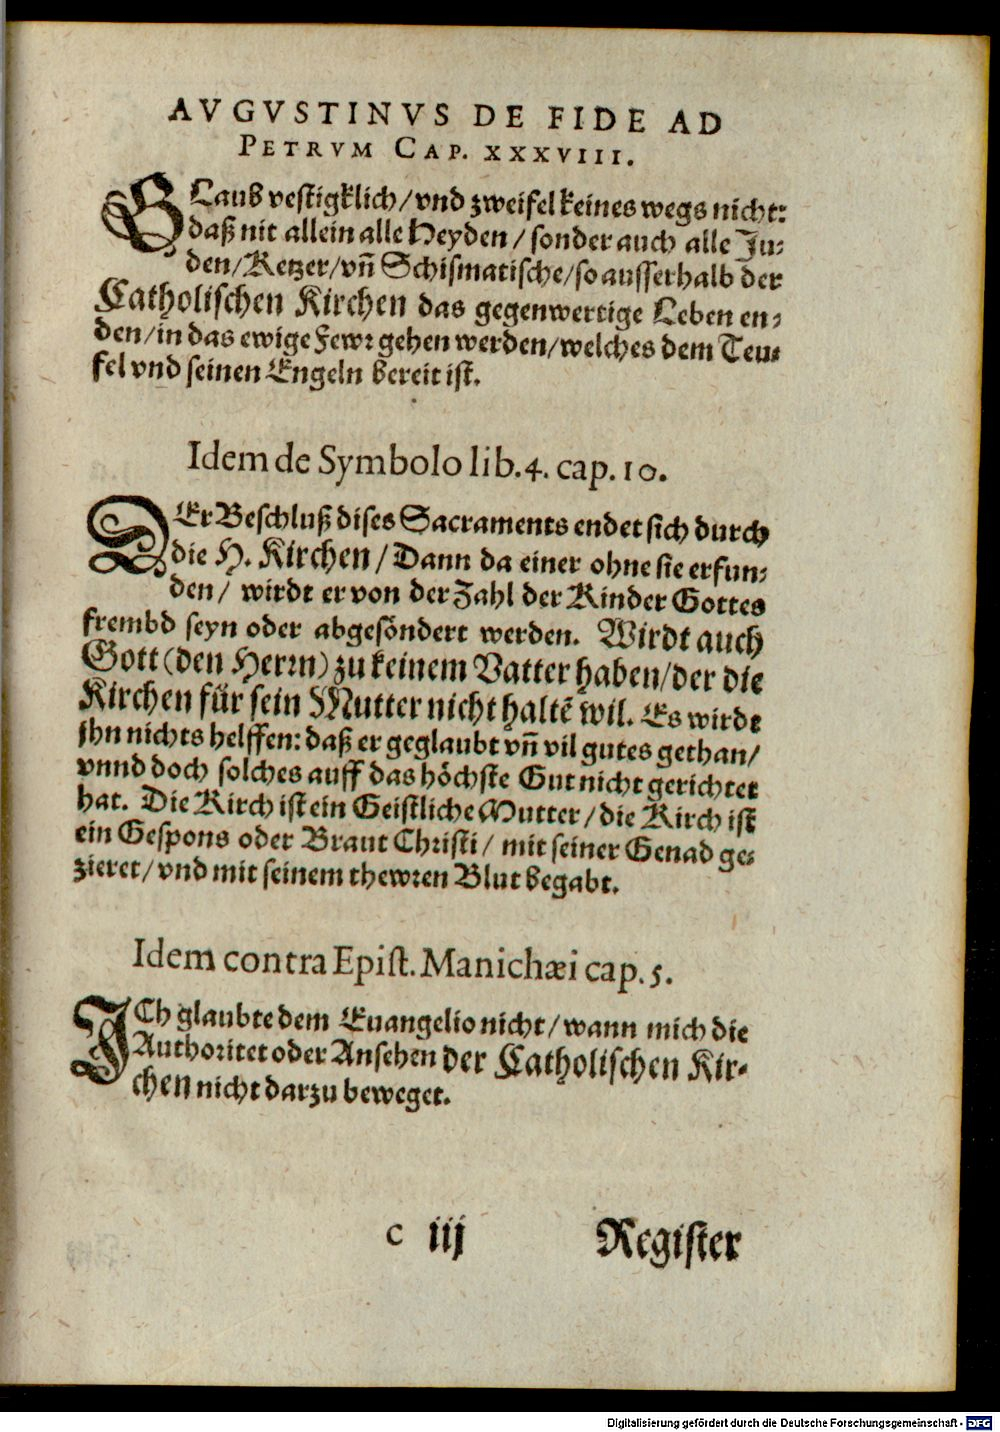 AVGVSTINVS DE FIDE AD
PETRVM CAP. XXXVIII.
GLaub vestigklich/vnd zweifel keines wegs nicht:
daß nit allein alle Heyden/sonder auch alle Ju-
den/Ketzer/vñ Schismatische/so ausserhalb der
Catholischen Kirchen das gegenwertige Leben en-
den/in das ewige Fewr gehen werden/welches dem Teu-
fel vnd seinen Engeln bereit ist.
Idem de Symbolo lib.4. cap.10.
DEr Beschluß dises Sacraments endet sich durch
die H. Kirchen/Dann da einer ohne sie erfun-
den/ wirdt er von der Zahl der Kinder Gottes
frembd seyn oder abgesöndert werden. Wirdt auch
Gott (den Herrn) zu keinem Vatter haben/der die
Kirchen für sein Mutter nicht haltẽ wil. Es wirdt
jhn nichts helffen: daß er geglaubt vñ vil gutes gethan/
vnnd doch solches auff das höchste Gut nicht gerichtet
hat. Die Kirch ist ein Geistliche Mutter/die Kirch ist
ein Gespons oder Braut Christi/ mit seiner Genad ge-
zieret/vnd mit seinem thewren Blut begabt.
Idem contra Epist. Manichæi cap.5.
ICh glaubte dem Euangelio nicht/wann mich die
Authoritet oder Ansehen der Catholischen Kir-
chen nicht darzu beweget.
c iij Register
Digitalisierung gefördert durch die Deutsche Forschungsgemeinschaft - DFG